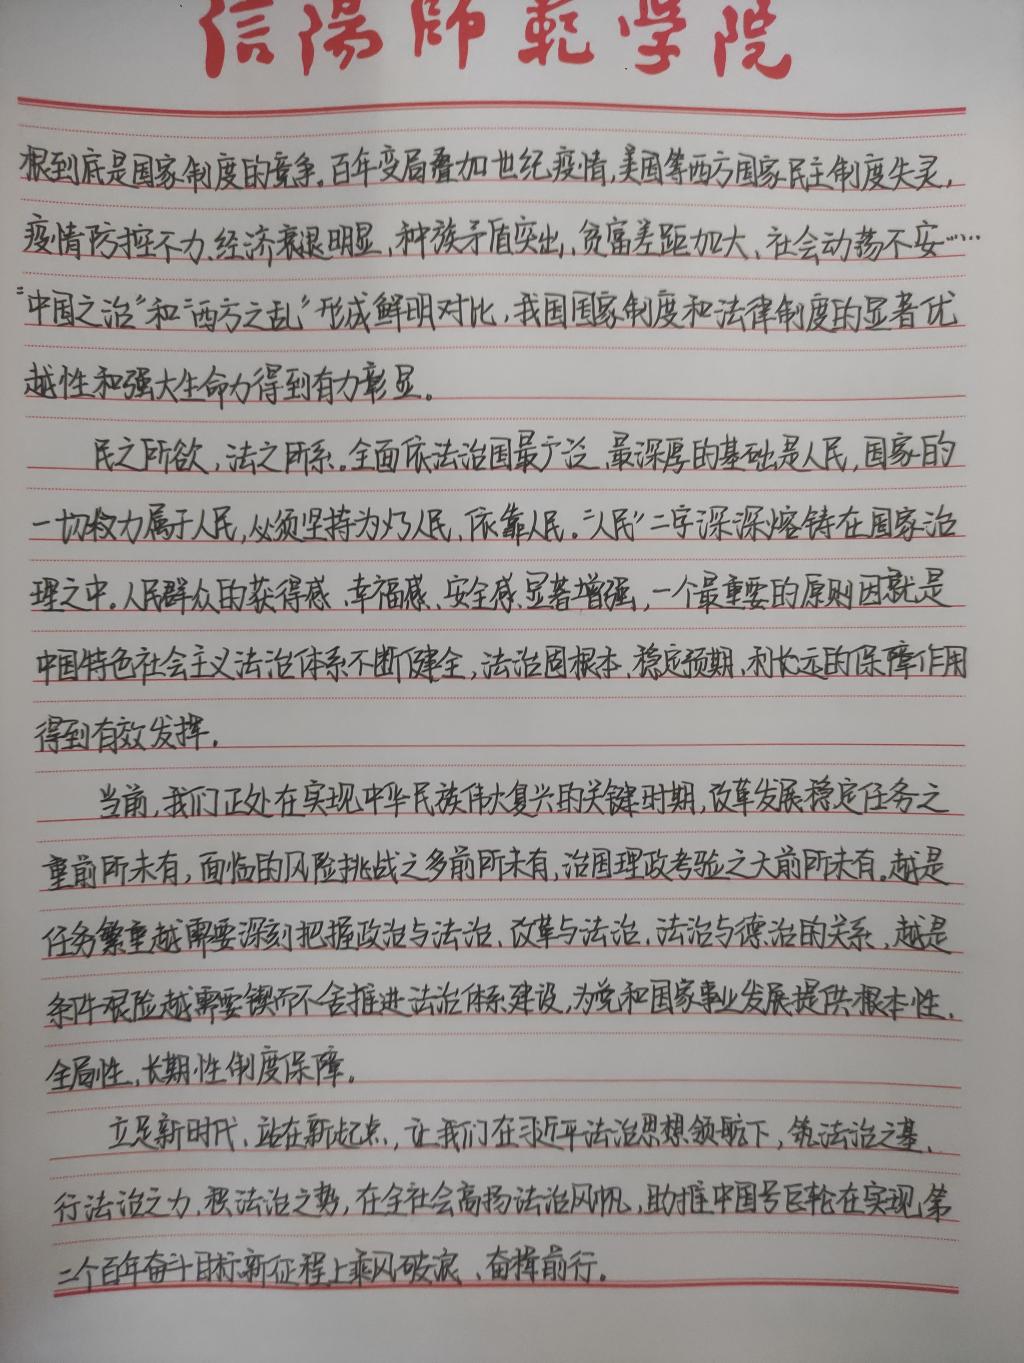 信陽師範学院
根到底是国家制度的竞争。百年变局叠加世纪疫情，美国等西方国家民主制度失灵，
疫情防控不力、经济衰退明显、种族矛盾突出、贫富差距加大、社会动荡不安……
“中国之治”和“西方之乱”形成鲜明对比，我国国家制度和法律制度的显著优
越性和强大生命力得到有力彰显。
民之所欲，法之所系。全面依法治国最广泛、最深厚的基础是人民，国家的
一切权力属于人民，必须坚持为了人民、依靠人民。“人民”二字深深熔铸在国家治
理之中。人民群众的获得感、幸福感、安全感显著增强，一个最重要的原则因就是
中国特色社会主义法治体系不断健全，法治固根本、稳定预期、利长远的保障作用
得到有效发挥。
当前，我们正处在实现中华民族伟大复兴的关键时期，改革发展稳定任务之
重前所未有，面临的风险挑战之多前所未有，治国理政考验之大前所未有。越是
任务繁重越需要深刻把握政治与法治、改革与法治、法治与德治的关系，越是
条件艰险越需要锲而不舍推进法治体系建设，为党和国家事业发展提供根本性、
全局性、长期性制度保障。
立足新时代、站在新起点，让我们在习近平法治思想领航下，筑法治之基、
行法治之力、积法治之势，在全社会高扬法治风帆，助推中国号巨轮在实现第
二个百年奋斗目标新征程上乘风破浪、奋楫前行。